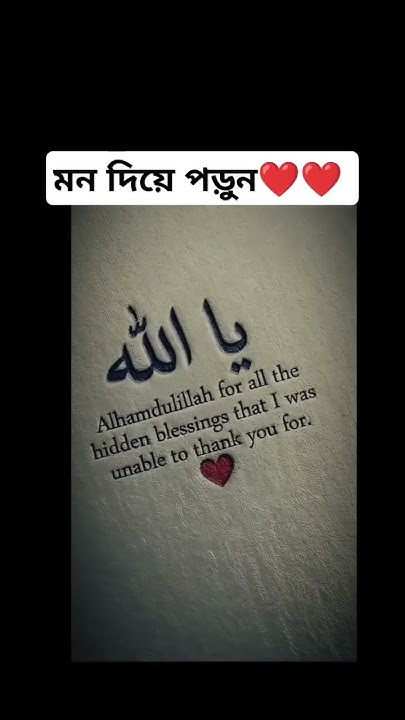 মন দিয়ে পড়ুন❤️❤️
يا الله
Alhamdulillah for all the
hidden blessings that I was
unable to thank you for.